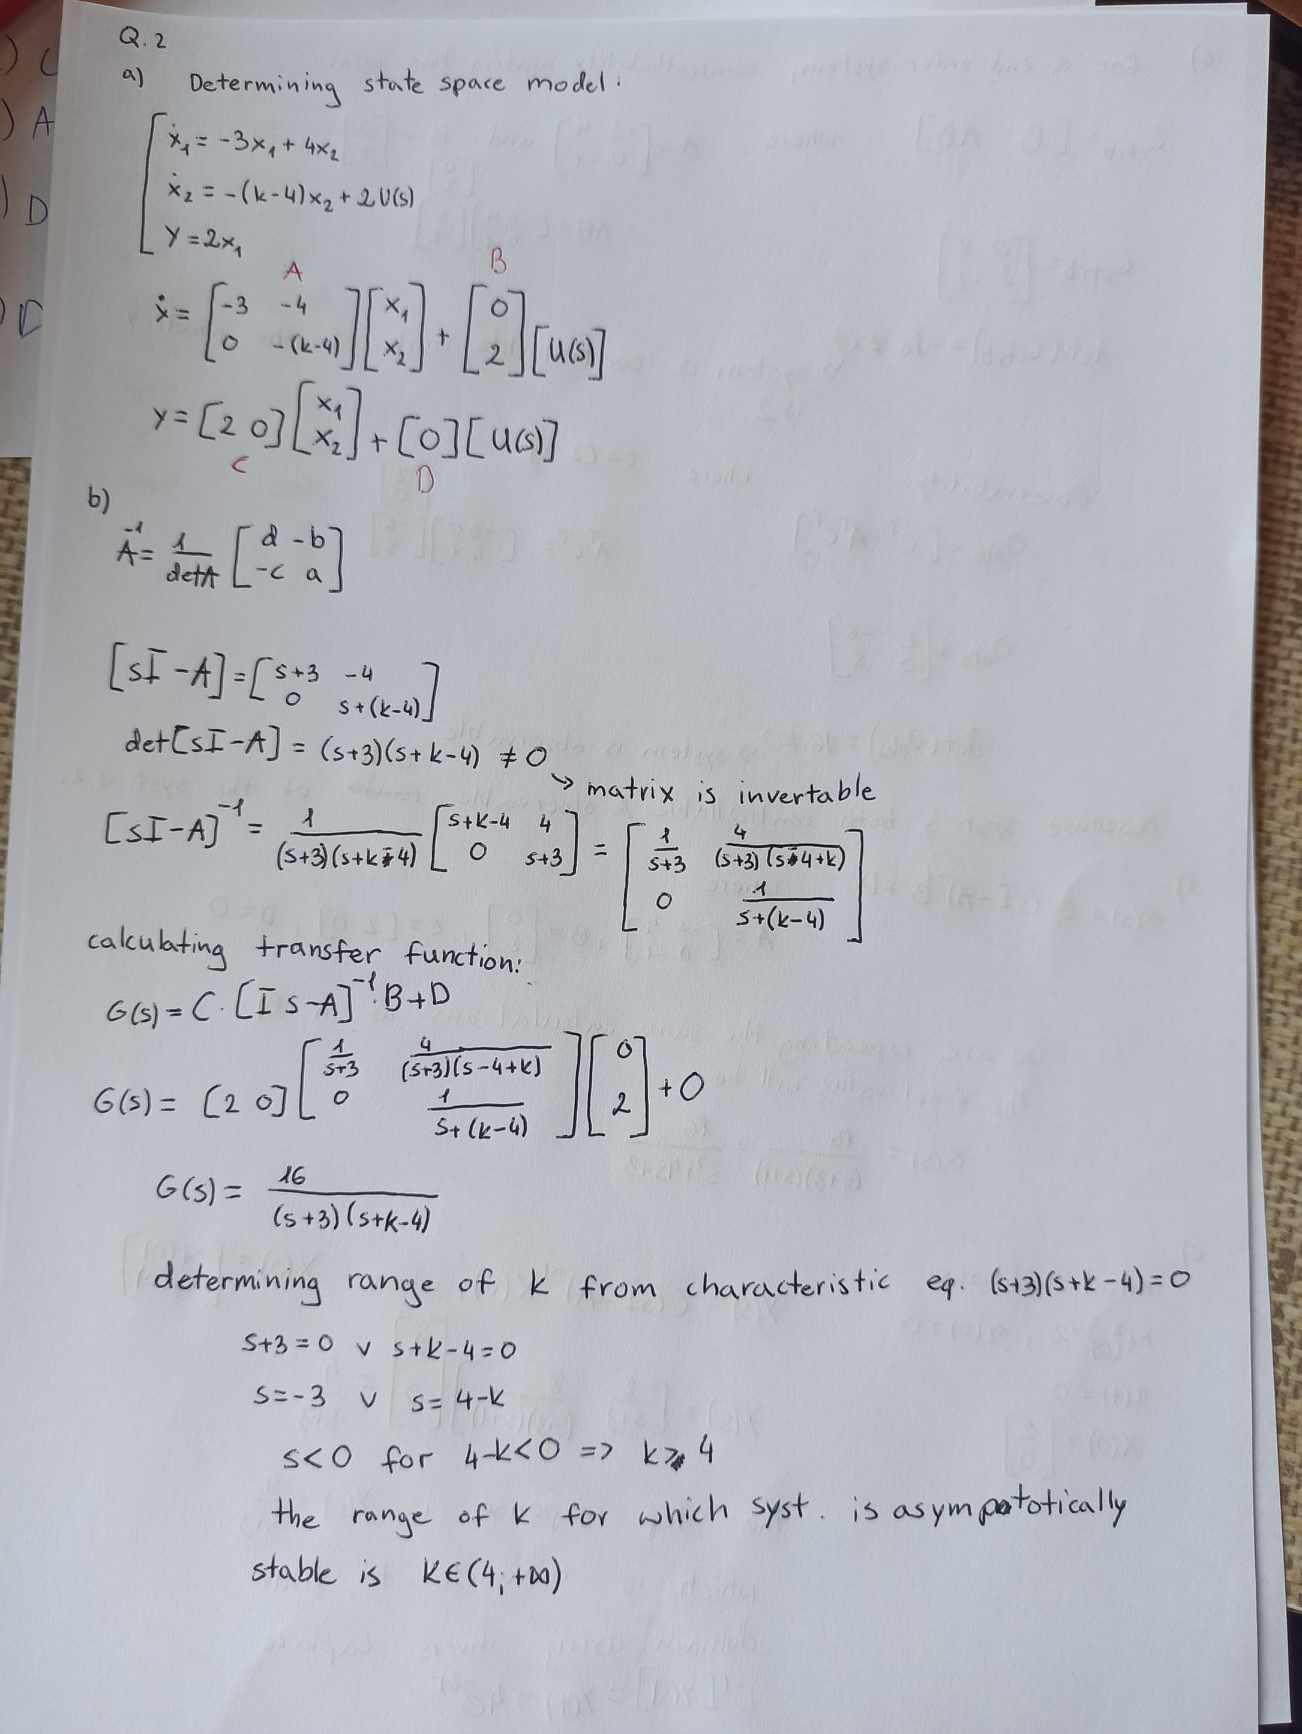 Q.2
a) Determining state space model:
ẋ₁ = -3x₁ + 4x₂
ẋ₂ = -(k-4)x₂ + 2U(s)
Y = 2x₁
A B
ẋ = [-3 -4; 0 -(k-4)] [x₁; x₂] + [0; 2] [U(s)]
y = [2 0] [x₁; x₂] + [0] [U(s)]
C D
b)
A⁻¹ = 1/detA [d -b; -c a]
[sI - A] = [s+3 -4; 0 s+(k-4)]
det[sI - A] = (s+3)(s+k-4) ≠ 0
↳ matrix is invertable
[sI - A]⁻¹ = 1/((s+3)(s+k-4)) [s+k-4 4; 0 s+3] = [1/(s+3) 4/((s+3)(s-4+k)); 0 1/(s+(k-4))]
calculating transfer function:
G(s) = C·[I s-A]⁻¹·B+D
G(s) = [2 0] [1/(s+3) 4/((s+3)(s-4+k)); 0 1/(s+(k-4))] [0; 2] + 0
G(s) = 16/((s+3)(s+k-4))
determining range of k from characteristic eq. (s+3)(s+k-4)=0
s+3=0 ∨ s+k-4=0
s=-3 ∨ s=4-k
s<0 for 4-k<0 => k>4
the range of k for which syst. is asympatotically
stable is k∈(4;+∞)
) A
) D